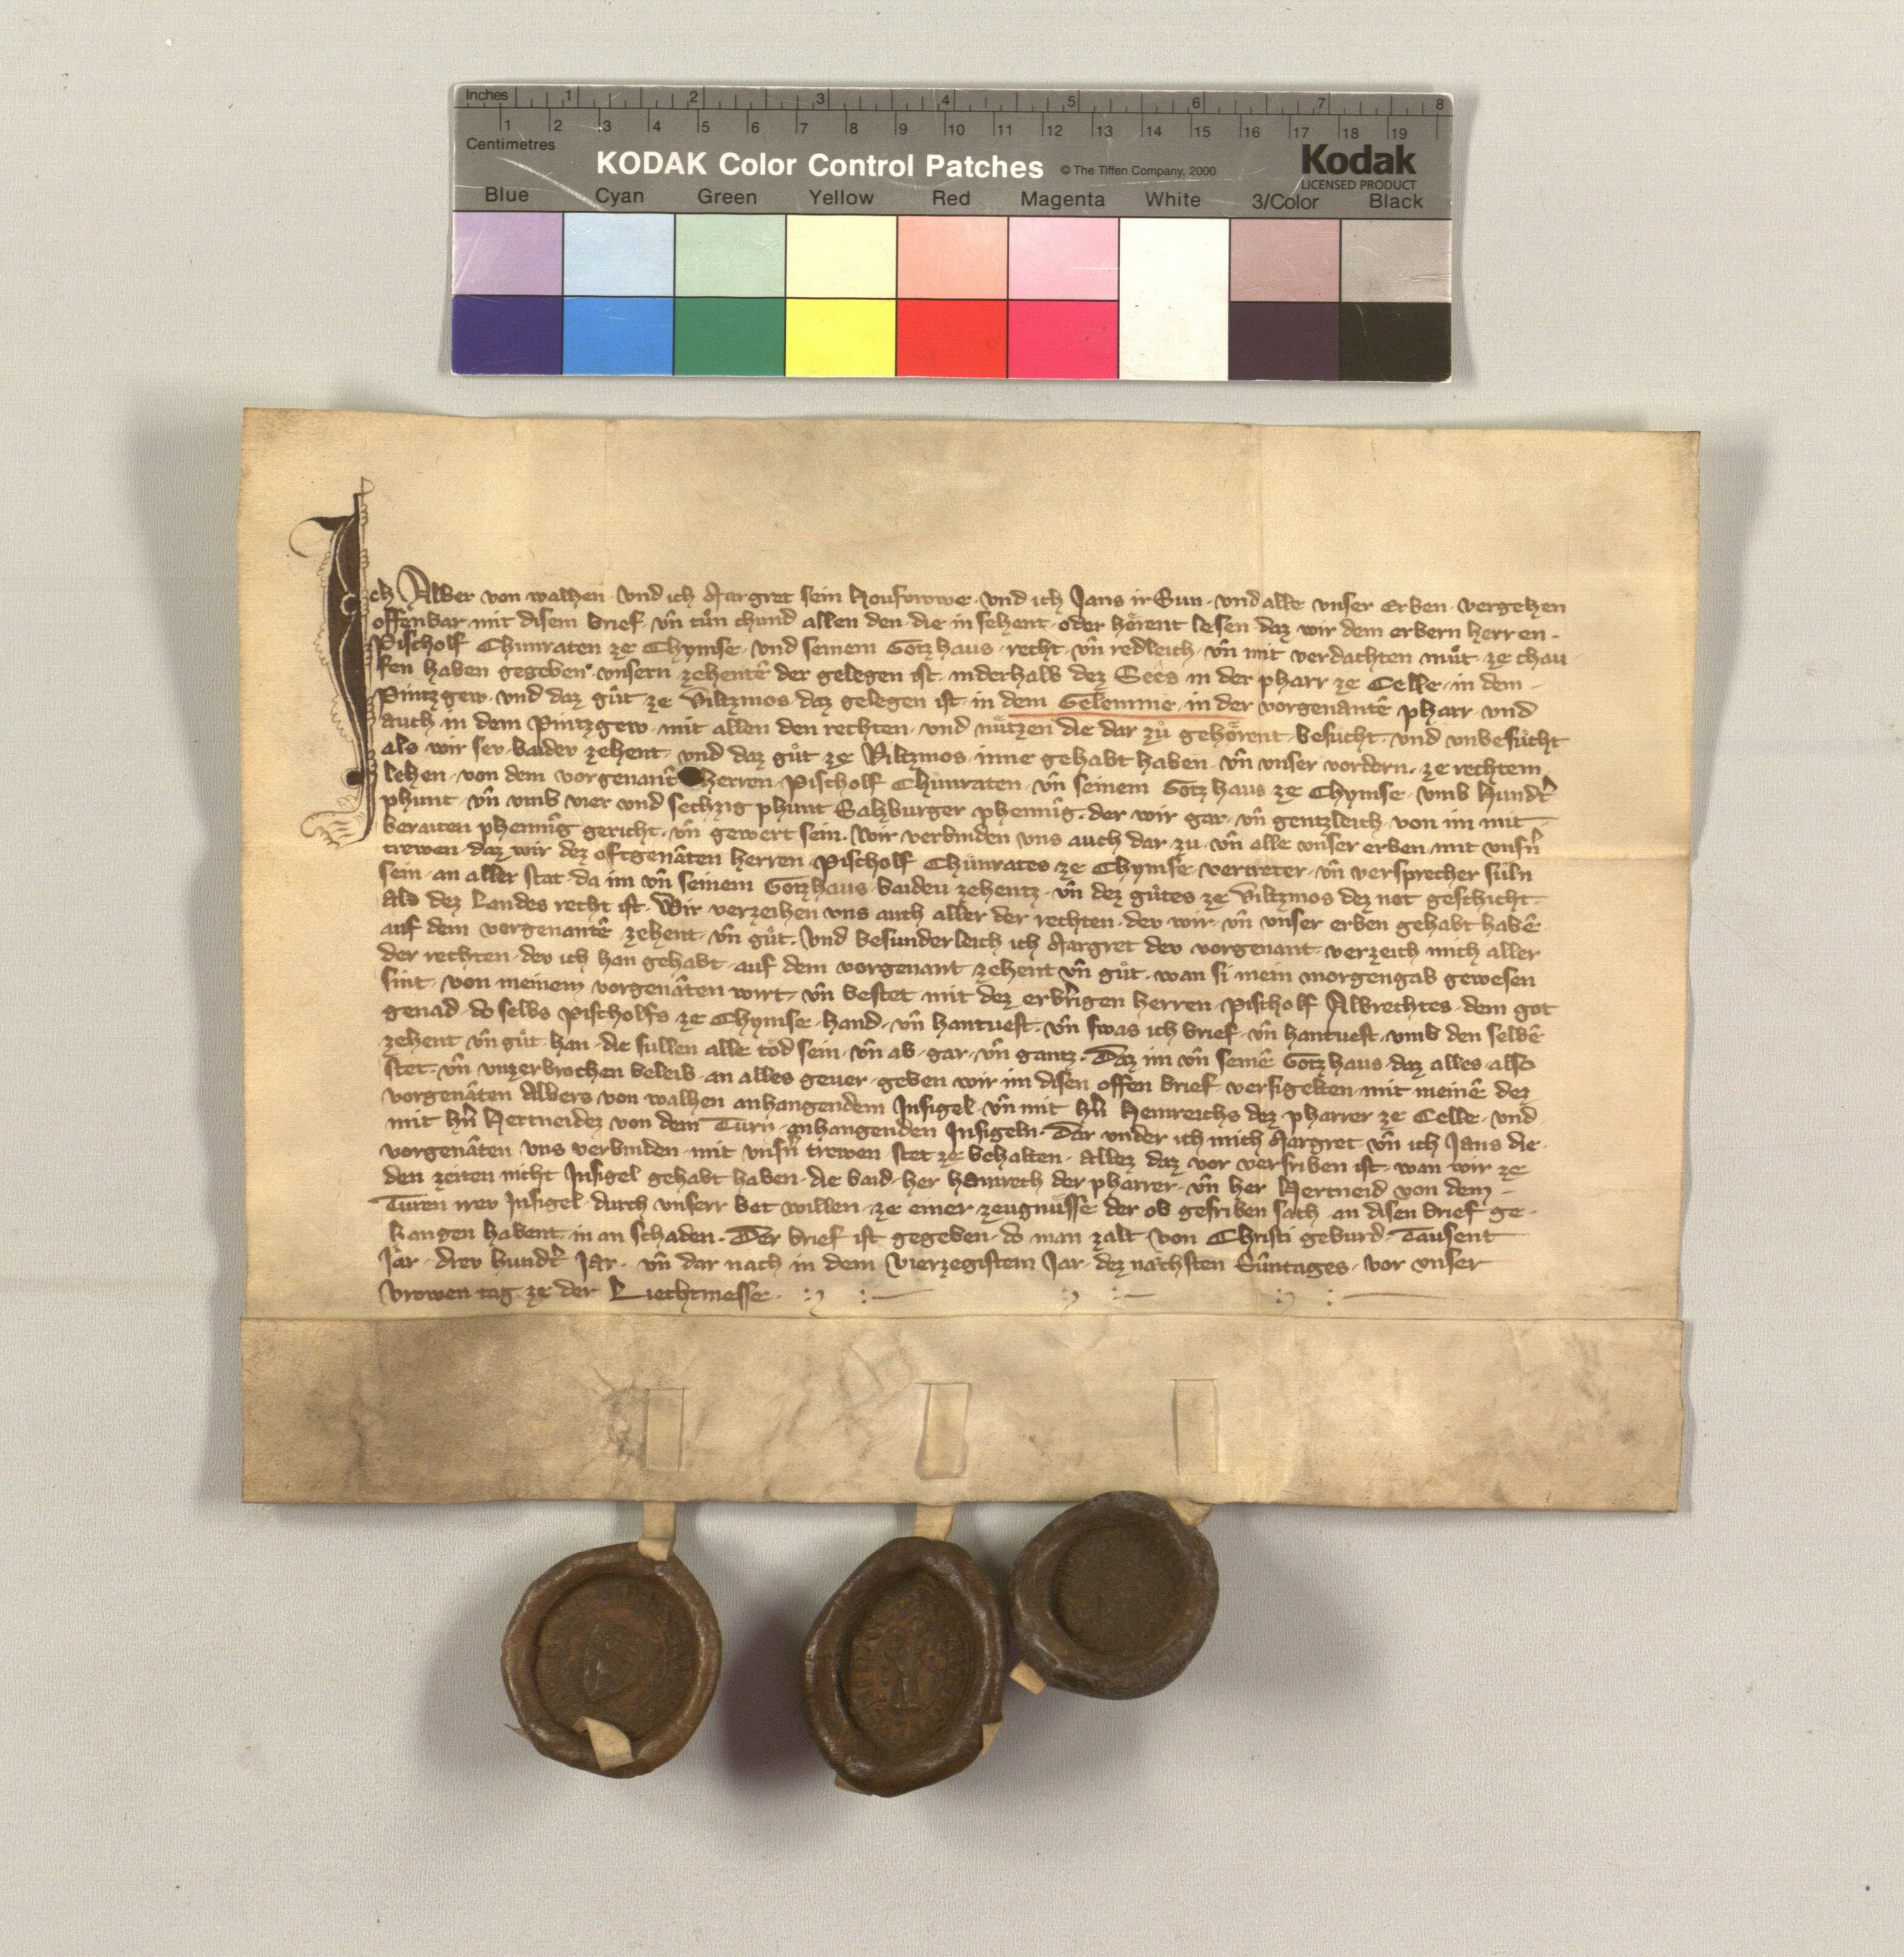 Inches 1 2 3 4 5 6 7 8
1 2 3 4 5 6 7 8 9 10 11 12 13 14 15 16 17 18 19
Centimetres
KODAK Color Control Patches © The Tiffen Company, 2000 Kodak
LICENSED PRODUCT
Blue Cyan Green Yellow Red Magenta White 3/Color Black
Ich Alber von walhen · vnd ich Margret sein Housvrowe · vnd ich Jans ir Sun · vnd alle vnser Erben · vergehen
offenbar mit disem brief · vn̄ tůn chund allen den · die in sehent · oder hoͤrent lesen · daz wir dem erbern herren -
Pischolf Chunraten ze Chymse · vnd seinem Gotzhaus · recht · vn̄ redleich · vn̄ mit verdachten můt · ze chau
fen haben gegeben · vnsern zehentē der gelegen ist · inderhalb dez Sees in der pharr ze Celle · in dem -
Pintzgew · vnd daz gůt ze Viltzmos · daz gelegen ist · in dem Gelemme · in der vorgenantē pharr · vnd
auch in dem Pintzgew · mit allen den rechten · vnd nuͤtzen die dar zů gehoͤrent · besůcht · vnd vnbesůcht
als wir sev · baider zehent · vnd daz gůt ze Viltzmos · inne gehabt haben · vn̄ vnser vordern · ze rechtem
lehen · von dem vorgenantē herren · Pischolf Chůnraten · vn̄ seinem Gotzhaus ze Chymse · vmb Hundt̄
phunt · vn̄ vmb vier vnd sechzig phunt Salzburger phennīg · der wir gar · vn̄ gentzleich · von im mit -
beraiten phennīg gericht · vn̄ gewert sein · Wir verbinden vns auch dar zu · vn̄ alle vnser erben · mit vnsn̄
trewen · daz wir dez oftgenāten herren · Pischolf Chůnrates ze Chymse · vertreter · vn̄ versprecher suͤln
sein · an aller stat · da im vn̄ seinem Gotzhaus · baideu zehentz · vn̄ dez gůtes ze Viltzmos dez not geschicht -
Als dez Landes recht ist · Wir verzeihen vns auch aller der rechten · dev wir · vn̄ vnser erben gehabt habē -
auf dem vorgenantē zehent · vn̄ gůt · Vnd besunderleich ich Margret dev vorgenant · verzeich mich aller
der rechten · dev ich han gehabt · auf dem vorgenant zehent vn̄ gůt · wan si mein morgengab gewesen
sint · von meinem vorgenāten wirt · vn̄ bestet mit dez erbr̄igen herren · Pischolf Albrechtes · dem got
genad · do selbs Pischolfs ze Chymse · hand · vn̄ hantuest · vn̄ swas ich brief · vn̄ hantuest · vmb den selbē
zehent vn̄ gůt han · die sullen alle tod sein · vn̄ ab · gar · vn̄ gantz · Daz im vn̄ seinē Gotzhaus · daz alles · also
stet · vn̄ vnzerbrochen beleib · an alles geuer · geben wir im disen offen brief · versigelten · mit meinē dez
vorgenāten Albers von walhen anhangendem Insigel · vn̄ mit hn̄ Heinreichs dez pharrer ze Celle · vnd
mit hn̄ Hertneidez von dem Turn · anhangenden Insigeln · Dar vnder ich mich Margret vn̄ ich Jans die ·
vorgenāten vns verbinden · mit vnsn̄ trewen · stet ze behalten · Allez daz vor verschriben ist · wan wir ze
den zeiten nicht Insigel gehabt haben · die baid · her Hainreich der pharrer · vn̄ her Hertneid von dem -
Turen irev Insigel · durch vnserr bet willen · ze einer · zeugnuͤsse der ob gesriben sach · an disen brief ge -
hangen habent · in an schaden · Der brief ist gegeben · do man zalt von Christi geburd · Tausent
Jar · drev hundt̄ Jar · vn̄ dar nach in dem Vierzegistem Jar · dez naͤchsten Sūntages · vor vnser
vrowen tag ze der Liechtmesse ·